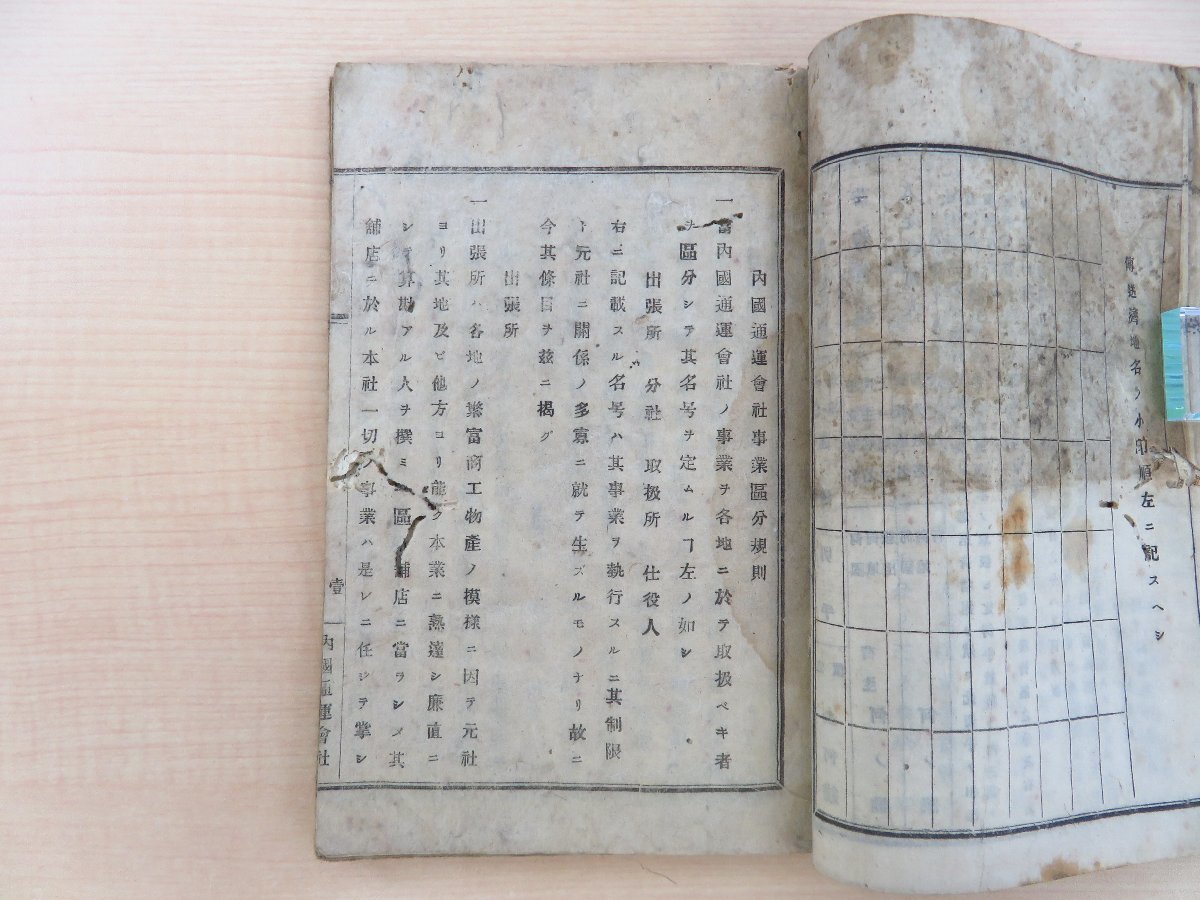 傳遞濟地名ノ小印順左ニ記スヘシ
內國通運會社事業區分規則
一當內國通運會社ノ事業ヲ各地ニ於テ取扱ベキ者
ヲ區分シテ其名号ヲ定ムルヿ左ノ如シ
出張所 分社 取扱所 仕役人
右ニ記載スル名号ハ其事業ヲ執行スルニ其制限
ト元社ニ關係ノ多寡ニ就テ生ズルモノナリ故ニ
今其條目ヲ茲ニ揭グ
出張所
一出張所ハ各地ノ繁富商工物產ノ摸樣ニ因テ元社
ヨリ其地及ビ他方ヨリ能ク本業ニ熟達シ廉直ニ
シテ算勘アル人ヲ撰ミ 區舖店ニ當ラシメ其
舖店ニ於ル本社一切ノ事業ハ是レニ任ジテ掌シ
壹
內國通運會社